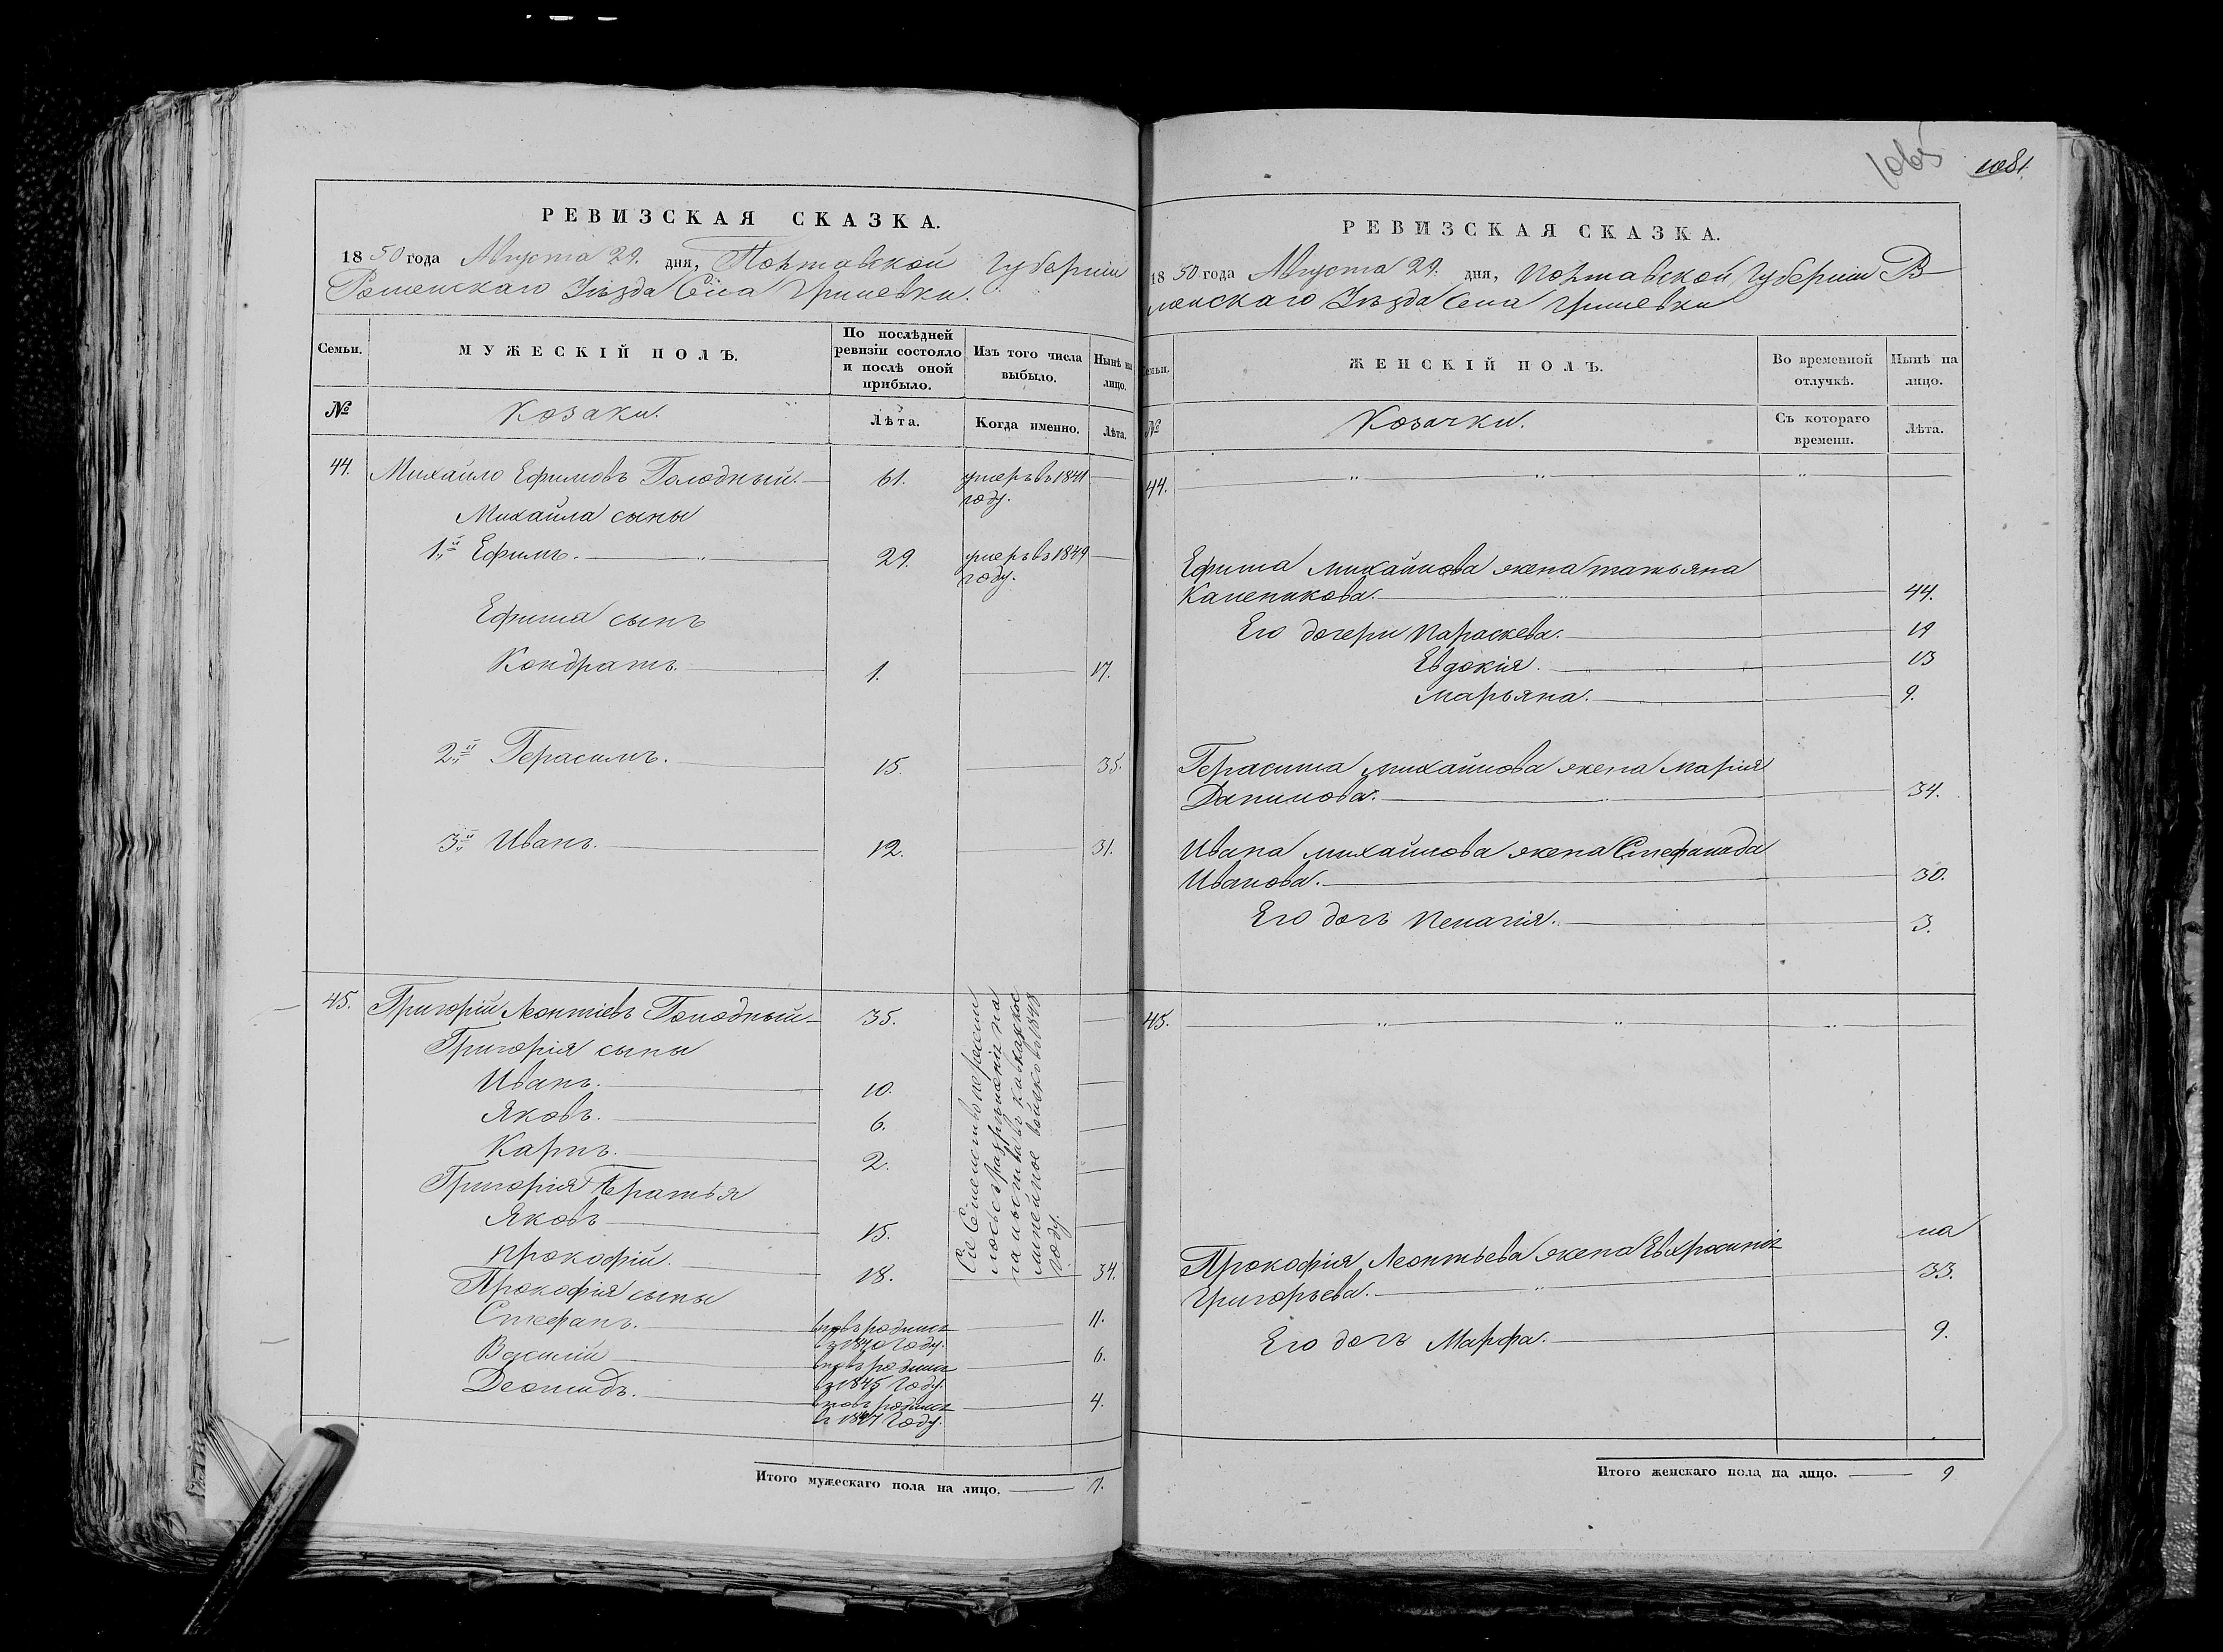 РЕВИЗСКАЯ СКАЗКА.
1850 года Августа 29. дня, Полтавской Губерніи
Роменскаго Уѣзда Села Гриневки.
Семьи. МУЖЕСКІЙ ПОЛЪ. По послѣдней ревизіи состояло и послѣ оной прибыло. Изъ того числа выбыло. Нынѣ на лицо.
№ Козаки. Лѣта. Когда именно. Лѣта.
44. Михайло Ефимовъ Голодный. 61. умеръ въ 1841
году.
Михайла сыны
1й Ефимъ. 29. умеръ въ 1849
году.
Ефима сынъ
Кондратъ. 1. 17.
2й Герасимъ. 15. 35.
3й Иванъ. 12. 31.
45. Григорій Леонтіевъ Голодный 35.
Григорія сыны
Иванъ. 10.
Яковъ. 6.
Карпъ. 2.
Григорія братья
Яковъ 15.
Прокофій. 18. 34.
Прокофія сыны
Стефанъ. вновь родился 11.
въ 1840 году.
Василій вновь родился 6.
въ 1845 году.
Леонидъ. вновь родился 4.
въ 1847 году.
Сіе Семейство переселилось съ разрѣшенія начальства въ Кавказкое линейное войско въ 1848 году.
Итого мужескаго пола на лицо. 7.
1065 1081.
РЕВИЗСКАЯ СКАЗКА.
1850 года Августа 29. дня, Полтавской Губерніи Ро
менскаго Уѣзда Села Гриневки
Семьи. ЖЕНСКІЙ ПОЛЪ. Во временной отлучкѣ. Нынѣ на лицо.
№ Козачки. Съ котораго времени. Лѣта.
44.
Ефима Михайлова жена Татьяна
44.
Его дочери Параскева. 19
Евдокія. 13
Марьяна. 9.
Герасима Михайлова жена Марія
Данилова. 34.
Ивана Михайлова жена Стефанида
Иванова. 30.
Его дочь Пелагія. 3.
45.
на
Прокофія Леонтьева жена Евхросинія
Григорьева. 33.
Его дочь Марфа. 9.
Итого женскаго пола на лицо. 9